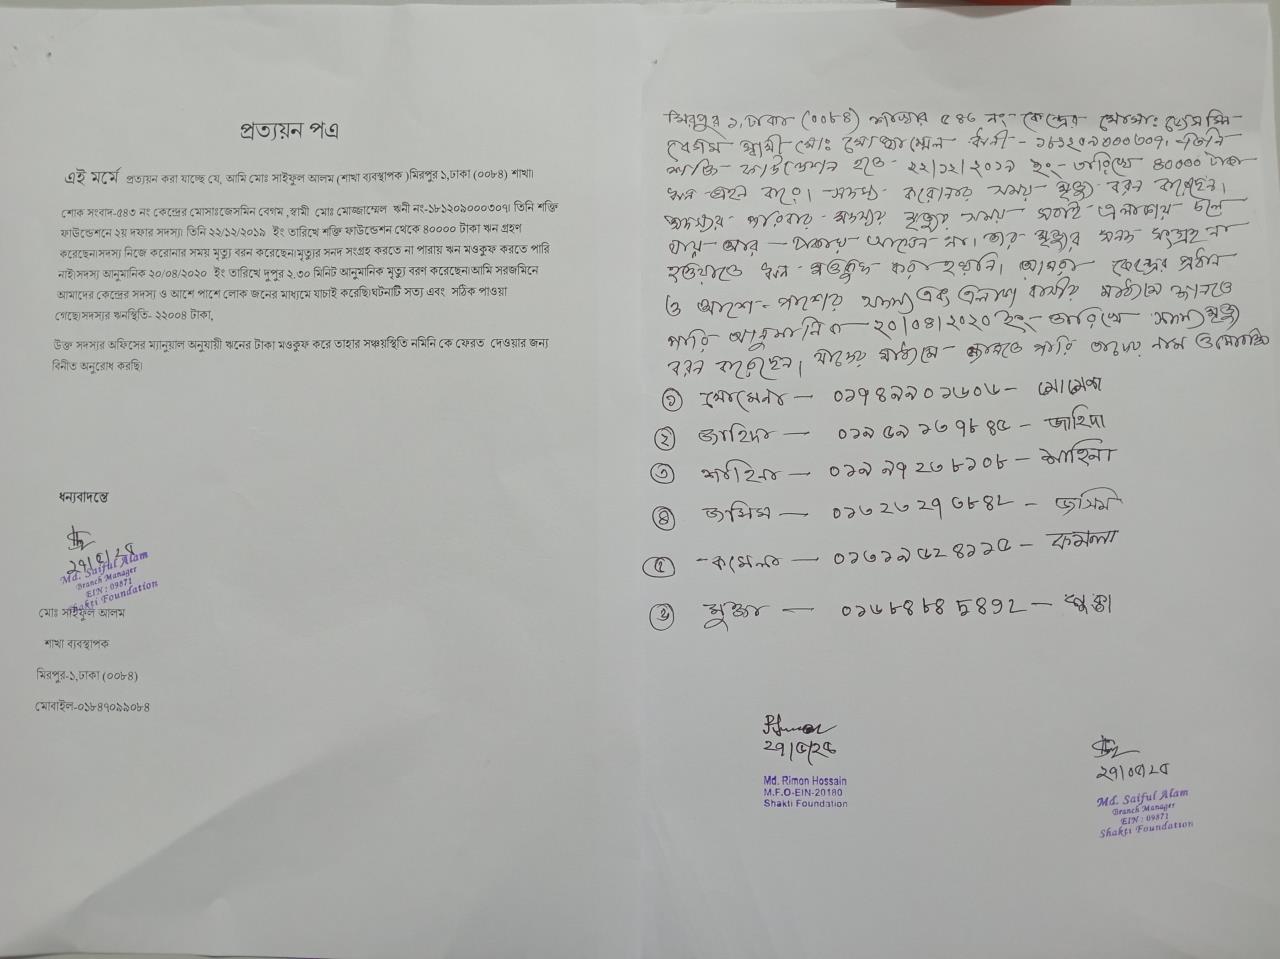 প্রত্যয়ন পত্র
এই মর্মে প্রত্যয়ন করা যাচ্ছে যে, আমি মোঃ সাইফুল আলম (শাখা ব্যবস্থাপক )মিরপুর ১,ঢাকা (০০৮৪) শাখা।
শোক সংবাদ-৫৪৩ নং কেন্দ্রের মোসাঃজেসমিন বেগম ,স্বামী মোঃ মোজ্জাম্মেল ঋনী নং-১৮১২০৯০০০৩০৭। তিনি শক্তি
ফাউন্ডেশনে ২য় দফার সদস্য। তিনি ২২/১২/২০১৯ ইং তারিখে শক্তি ফাউন্ডেশন থেকে ৪০০০০ টাকা ঋন গ্রহণ
করেছেন।সদস্য নিজে করোনার সময় মৃত্যু বরন করেছেন।মৃত্যুর সনদ সংগ্রহ করতে না পারায় ঋন মওকুফ করতে পারি
নাই।সদস্য আনুমানিক ২০/০৪/২০২০ ইং তারিখে দুপুর ২.৩০ মিনিট আনুমানিক মৃত্যু বরণ করেছেন।আমি সরজমিনে
আমাদের কেন্দ্রের সদস্য ও আশে পাশে লোক জনের মাধ্যমে যাচাই করেছি।ঘটনাটি সত্য এবং সঠিক পাওয়া
গেছে।সদস্যর ঋনস্থিতি- ২২০০৪ টাকা,
উক্ত সদস্যর অফিসের ম্যানুয়াল অনুযায়ী ঋনের টাকা মওকুফ করে তাহার সঞ্চয়স্থিতি নমিনি কে ফেরত দেওয়ার জন্য
বিনীত অনুরোধ করছি।
ধন্যবাদন্তে
২৭/৫/২৫
Md. Saiful Alam
Branch Manager
EIN : 09871
Shakti Foundation
মোঃ সাইফুল আলম
শাখা ব্যবস্থাপক
মিরপুর-১,ঢাকা (০০৮৪)
মোবাইল-০১৮৪৭০৯৯০৮৪
মিরপুর ১,ঢাকা (০০৮৪) শাখার ৫৪৩ নং- কেন্দ্রের মোসাঃ জেসমিন
বেগম স্বামী মোঃ মোজ্জাম্মেল ঋনী - ১৮১২০৯০০০৩০৭। তিনি
শক্তি ফাউন্ডেশন হতে ২২/১২/২০১৯ ইং- তারিখে ৪০০০০ টাকা
ঋন গ্রহন করে। সদস্য করোনার সময় মৃত্যু বরন করেছেন।
সদস্যর পরিবার সদস্যর মৃত্যুর সময় সবাই এলাকায় চলে
যায় আর ঢাকায় আসেন না। তার মৃত্যুর সনদ সংগ্রহ না
হওয়াতে ঋন মওকুফ করা হয়নি। আমরা কেন্দ্রের প্রধান
ও আশে-পাশের সদস্য এবং এলাকা বাসীর মাধ্যমে জানতে
পারি আনুমানিক ২০/০৪/২০২০ ইং- তারিখে সদস্য মৃত্যু
বরন করেছেন। যাদের মাধ্যমে জানতে পারি তাদের নাম ও
① মোমেনা — ০১৭৪৯৯০১৬০৬ —
② জাহিদা — ০১৯৫৯১৩৭৮৪৫ — জাহিদা
③ শাহিনা — ০১৯৯৭২৩৮১০৮ — শাহিনা
④ জসিম — ০১৩২৩২৭৩৮৪২ — জসিম
⑤ কমেলা — ০১৩১৯৫২৪১১৫ — কমলা
⑥ মুক্তা — ০১৬৮৪৮৪৫৪৭২ — মুক্তা
২৭/৫/২৫
Md. Rimon Hossain
M.F.O-EIN-20180
Shakti Foundation
২৭/০৫/২৫
Md. Saiful Alam
Branch Manager
EIN : 09871
Shakti Foundation